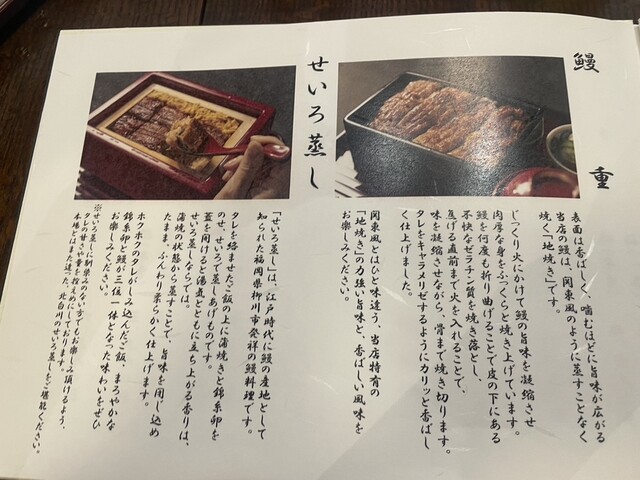 鰻重
表面は香ばしく、噛むほどに旨味が広がる
当店の鰻は、関東風のように蒸すことなく
焼く「地焼き」です。
じっくり火にかけて鰻の旨味を凝縮させ
肉厚な身をふっくらと焼き上げています。
鰻を何度も折り曲げることで皮の下にある
不快なゼラチン質を焼き落とし、
焦げる直前まで火を入れることで、
味を凝縮させながら、骨まで焼き切ります。
タレをキャラメリゼするようにカリッと香ばし
く仕上げました。
関東風とはひと味違う、当店特有の
「地焼き」の力強い旨味と、香ばしい風味を
お楽しみください。
せいろ蒸し
「せいろ蒸し」は、江戸時代に鰻の産地として
知られた福岡県柳川市発祥の鰻料理です。
タレを絡ませたご飯の上に蒲焼きと錦糸卵を
のせ、せいろで蒸しあげものです。
蓋を開けると湯気とともに立ち上がる香りは、
せいろ蒸しならでは。
蒲焼の状態から蒸すことで、旨味を閉じ込め
たまま、ふんわり柔らかく仕上げます。
ホクホクのタレがしみ込んだご飯、まろやかな
錦糸卵と鰻が三位一体となった味わいをぜひ
お楽しみください。
※せいろ蒸しに馴染みのない方でもお楽しみ頂けるよう、
タレの甘さや量を控えめにしております。
本場とはまた違った、北白川のせいろ蒸しをご堪能ください。